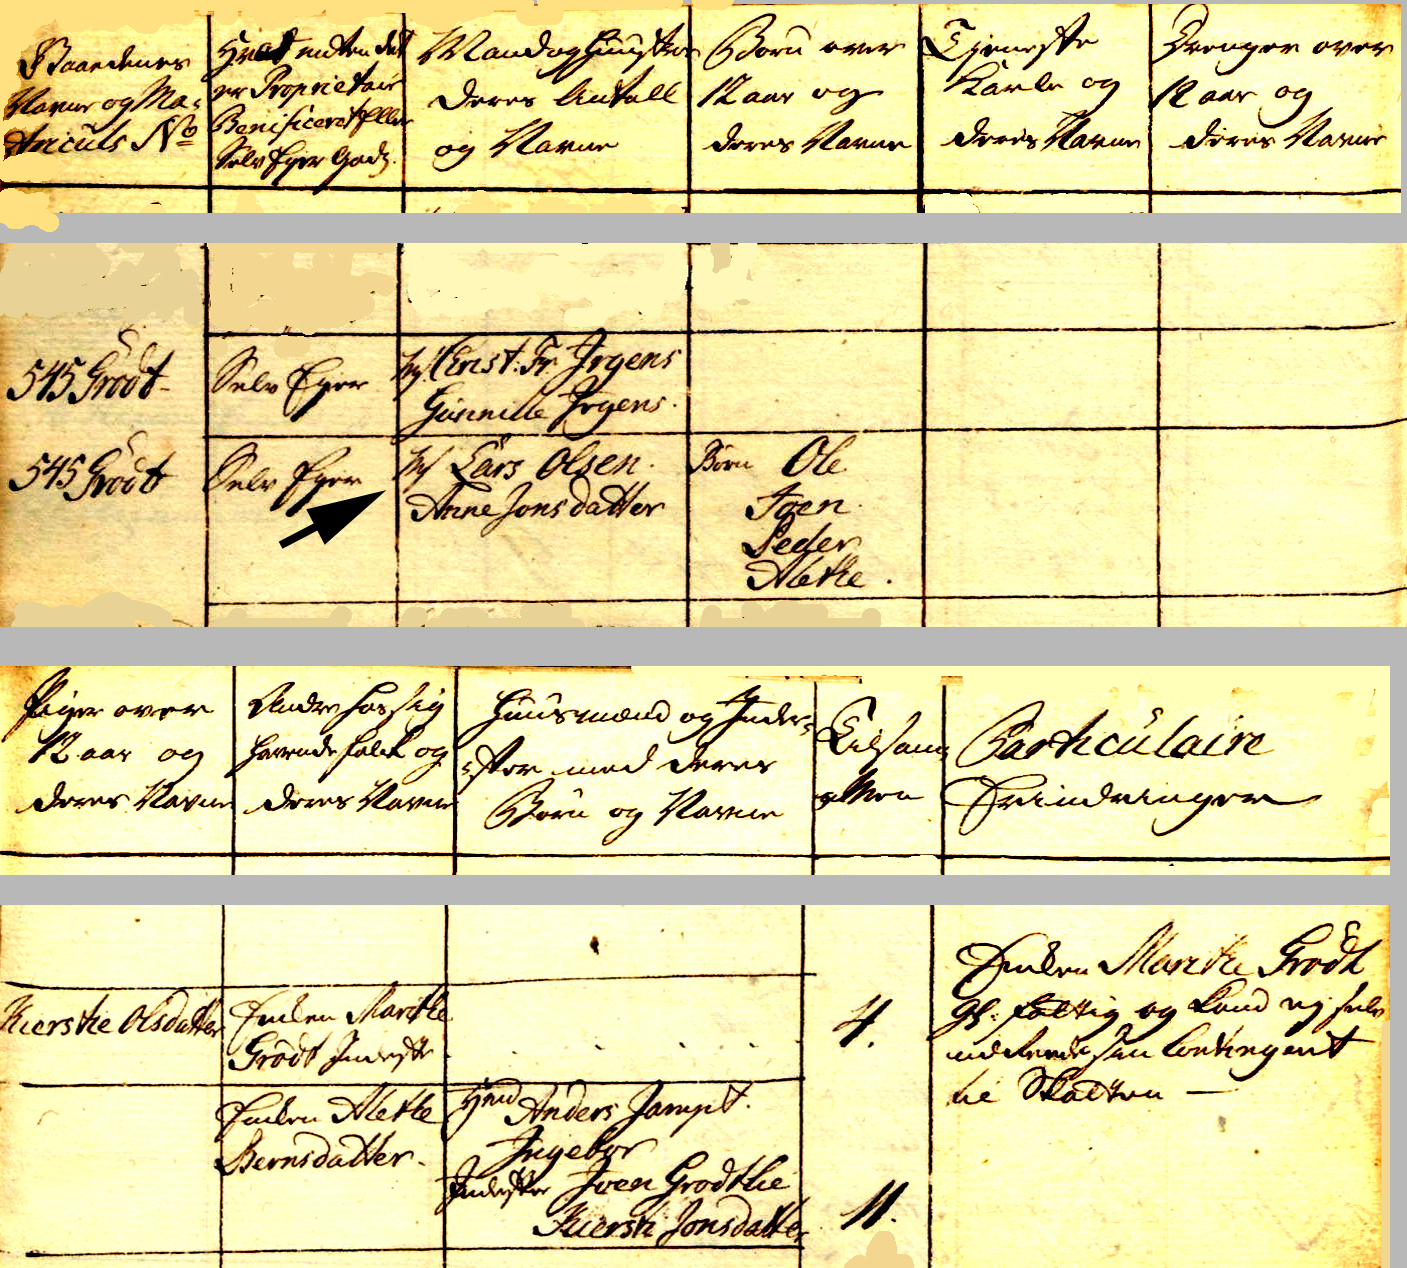 Gaardenes
Navne og Ma-
triculs No
Hvad enten det
er Proprietair
Beneficeret eller
Selv Ejer Gods.
Mand og Hustrue
deres Antall
og Navne
Børn over
12 aar og
deres Navne
Tjeneste
Karle og
deres Navne
Drenger over
12 aar og
deres Navne
545 Grödt
Selv Ejer
Ernst: Fr. Irgens
Gunnille Irgens.
545 Grödt
Selv Ejer
Lars Olsen.
Anne Jonsdatter
Børn Ole
Joen
Peder
Alethe.
Piger over
12 aar og
deres Navne
Andre hos sig
havende folk og
deres Navne
Huusmænd og Inder-
ster med deres
Børn og Navne
Tilsam-
men
Particulaire
Erindringer
Kierstie Olsdatter
Enken Marithe
Grödt Inderste
4.
Enken Marithe Grödt
er fattig og kand ej selv
udreede sin Contingent
til Skatten —
Enken Alethe
Bernsdatter.
Huusmand Anders Jampt.
Ingebor
Inderster Joen Grodtlie
Kiersti Jonsdatter
11.